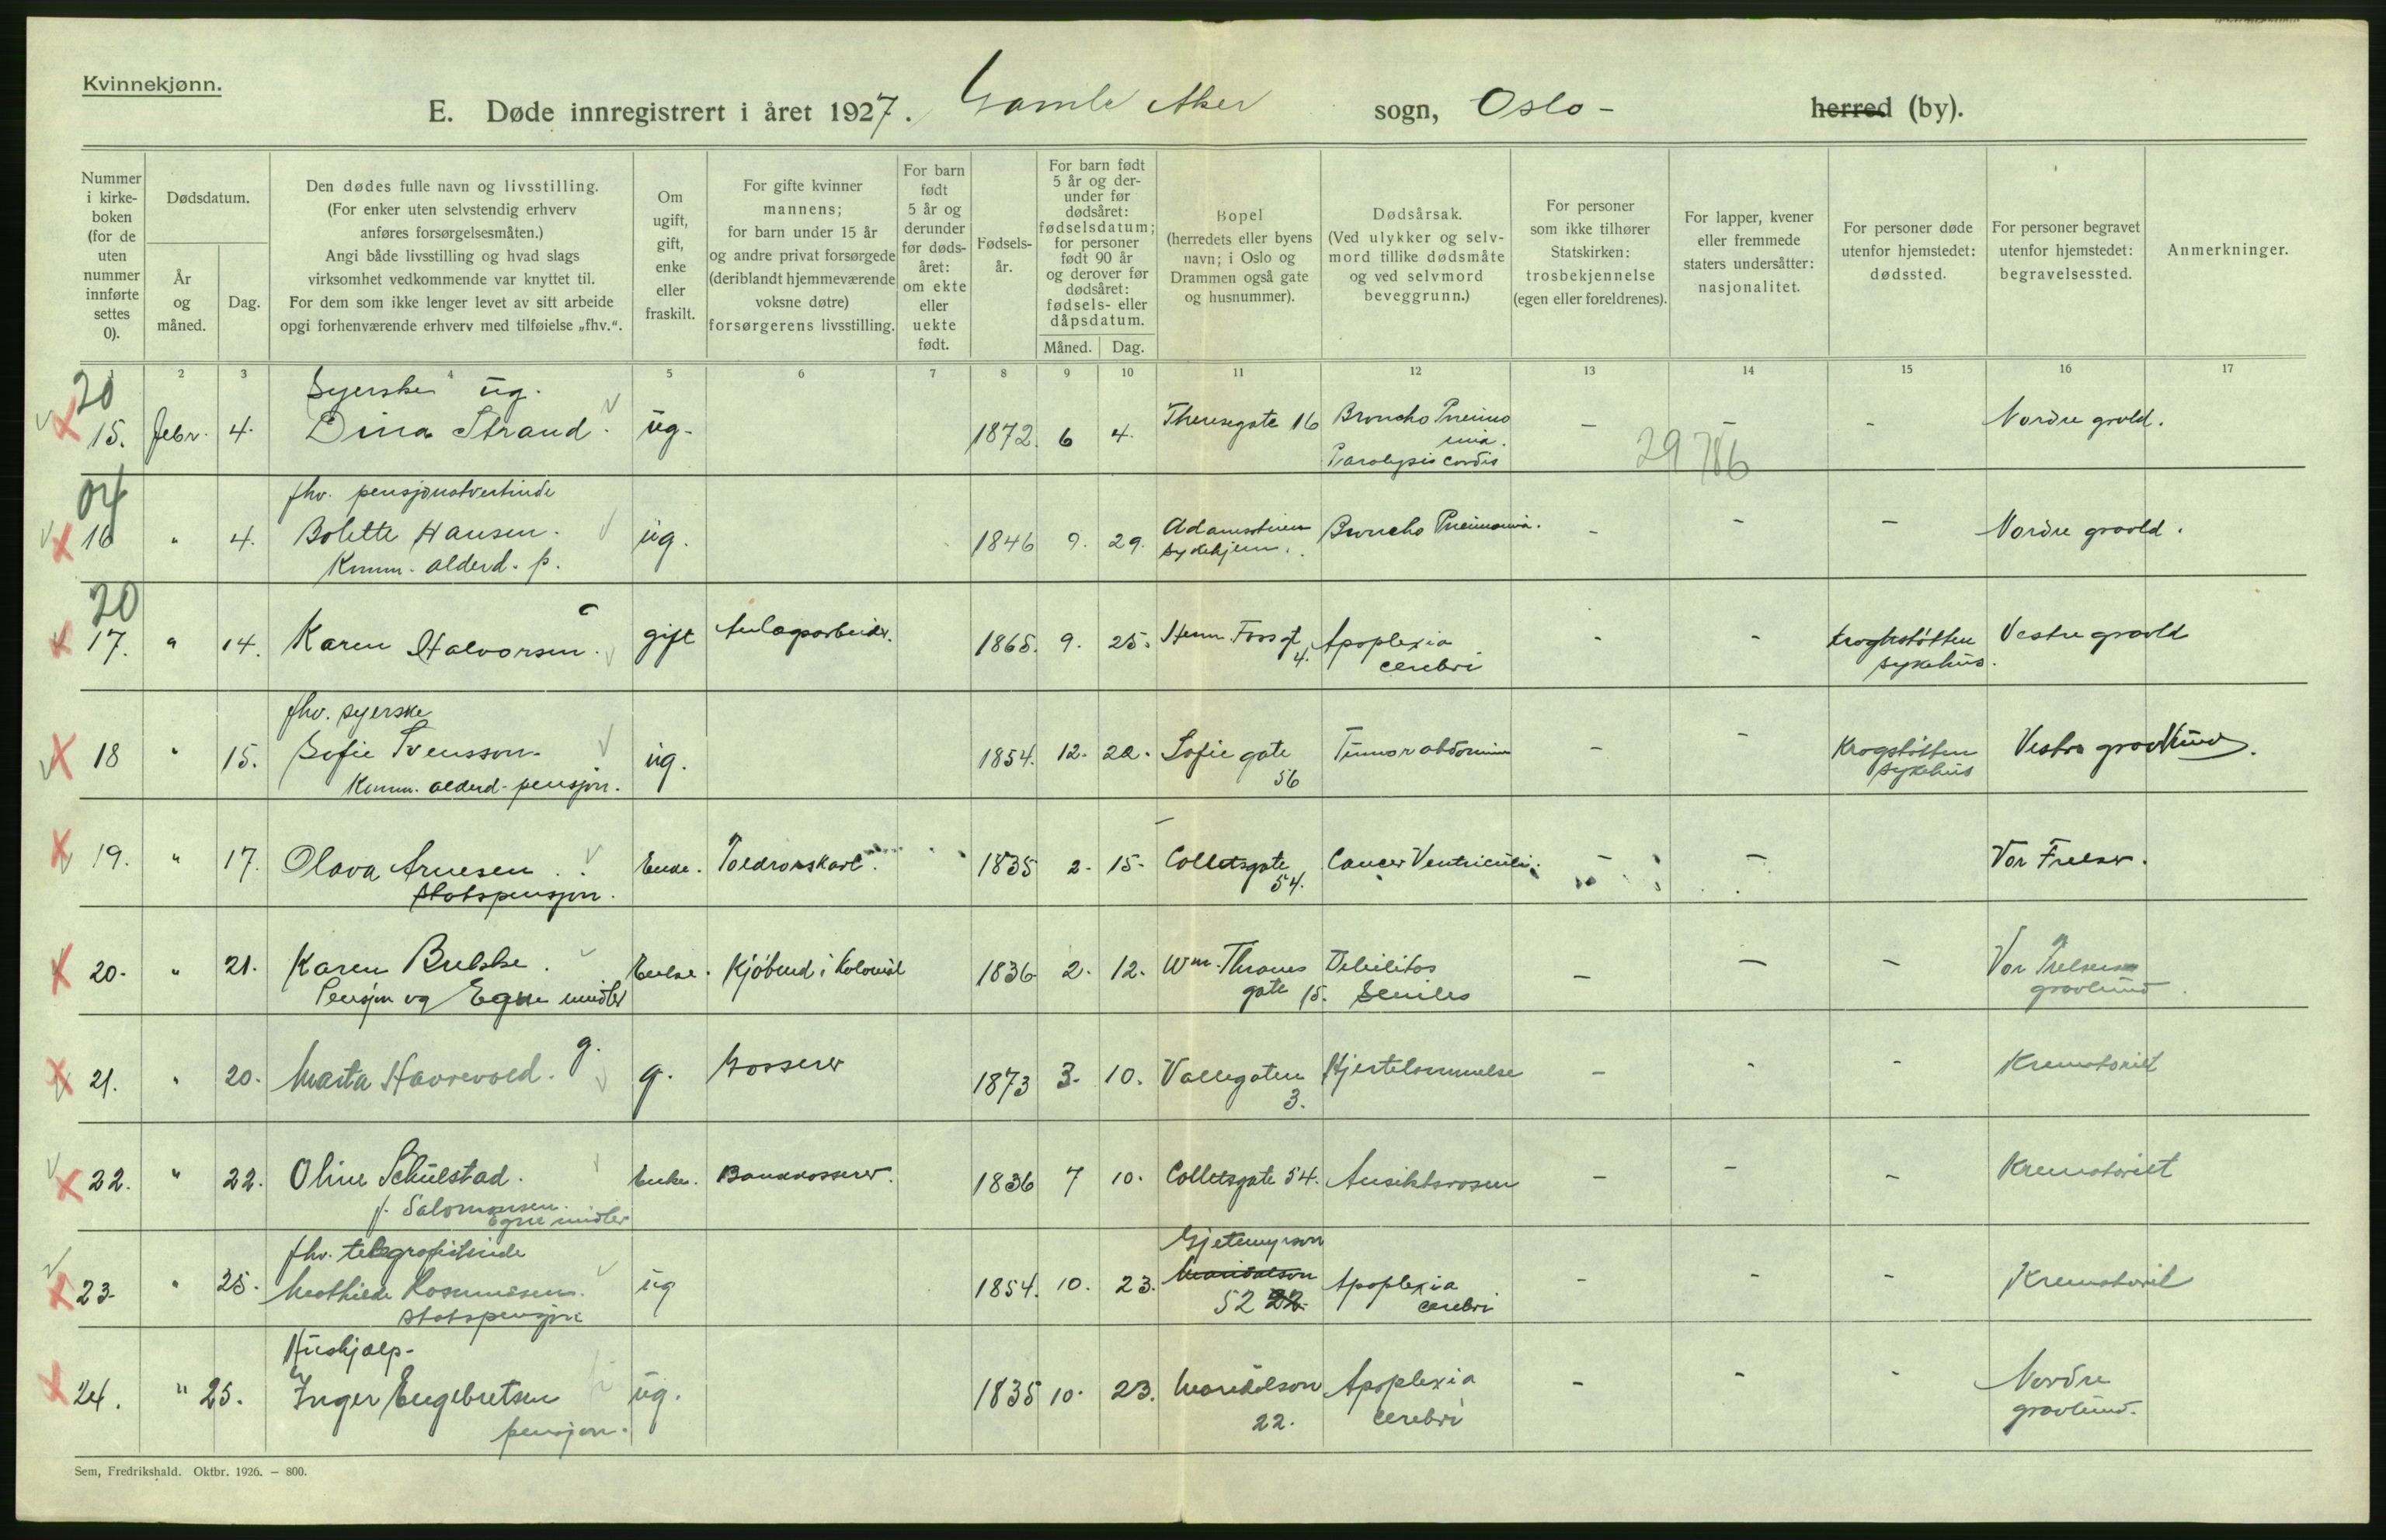 Kvinnekjønn.
E. Døde innregistrert i året 1927. Gamle Aker sogn, Oslo - herred (by).
Nummer i kirke- boken (for de uten nummer innførte settes 0).
Dødsdatum.
År og måned.
Dag.
Den dødes fulle navn og livsstilling.
(For enker uten selvstendig erhverv
anføres forsørgelsesmåten.)
Angi både livsstilling og hvad slags
virksomhet vedkommende var knyttet til.
For dem som ikke lenger levet av sitt arbeide
opgi forhenværende erhverv med tilføielse „fhv.“.
Om ugift, gift, enke eller fraskilt.
For gifte kvinner
mannens;
for barn under 15 år
og andre privat forsørgede
(deriblandt hjemmeværende
voksne døtre)
forsørgerens livsstilling.
For barn født 5 år og derunder før døds- året: om ekte eller uekte født.
Fødsels- år.
For barn født 5 år og der- under før dødsåret: fødselsdatum; for personer født 90 år og derover før dødsåret: fødsels- eller dåpsdatum.
Måned. Dag.
Bopel
(herredets eller byens
navn; i Oslo og
Drammen også gate
og husnummer).
Dødsårsak.
(Ved ulykker og selv-
mord tillike dødsmåte
og ved selvmord
beveggrunn.)
For personer
som ikke tilhører
Statskirken:
trosbekjennelse
(egen eller foreldrenes).
For lapper, kvener
eller fremmede
staters undersåtter:
nasjonalitet.
For personer døde
utenfor hjemstedet:
dødssted.
For personer begravet
utenfor hjemstedet:
begravelsessted.
Anmerkninger.
1 2 3 4 5 6 7 8 9 10 11 12 13 14 15 16 17
20
Syerske ug.
15. febr. 4. Dina Strand. ug. 1872. 6 4. Theresegate 16 Broncho Pneumo nia. - - - Nordre gravld.
Paralysis cordis
29786
04
fhv. pensjonatvertinde
16 " 4. Bolette Hansen. ug. 1846 9. 29. Adamstuen sykehjem. Broncho Pneumonia. - - - Nordre gravld.
Komm. alderd. p.
20
17. " 14. Karen Halvorsen. gift Anlægsarbeider. 1865. 9. 25. Herm. Foss gt 4. Apoplexia cerebri - - Kroghstøtten sykehus. Vestre gravld
fhv. syerske
18 " 15. Sofie Svensson. ug. 1854. 12. 22. Sofie gate 56 Tumor abdomin - - Krogstøtten sykehus Vestre gravlund.
Komm. alderd. pensjon.
19. " 17. Olava Arnesen. Enke. 1835 2. 15. Colletsgate 54. Cancer Ventriculi. - - Vor Frelser.
Statspensjon.
20. " 21. Karen Enke. Kjøbmd i Kolonial 1836 2. 12. Wm. Thranes gate 15. Debilitas Seniles - - - Vor Frelsers gravlund.
Pensjon og Egne midler
21. " 20. Marta Haavevold. g. g. Grosserer 1873 3. 10. Vallegaten 3. Hjertelammelse - - - Krematoriet
22. " 22. Oline Schulstad. Enke. Bankkasserer. 1836 7 10. Colletsgate 54. Ansiktsrosen - - - Krematoriet
f. Salomonsen. Egne midler
fhv. telegrafistinde
23. " 25. Mathilde Rasmussen. ug 1854. 10. 23. Gjetemyrsvn Maridalsvn 52 22. Apoplexia cerebri - - - Krematoriet
Statspensjon
Hushjælp.
24. " 25. Inger Engebretsen ug. 1835 10. 23. Maridalsvn 22. Apoplexia cerebri - - - Nordre gravlund.
pensjon.
Sem, Fredrikshald. Oktbr. 1926. – 800.